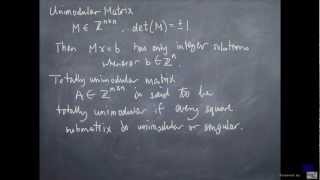 Unimodular Matrix
M ∈ ℤⁿˣⁿ, det(M) = ±1
Then Mx=b has only integer solutions
whenever b ∈ ℤⁿ.
Totally unimodular matrix
A ∈ ℤᵐˣⁿ is said to be
totally unimodular if every square
submatrix is unimodular or singular.